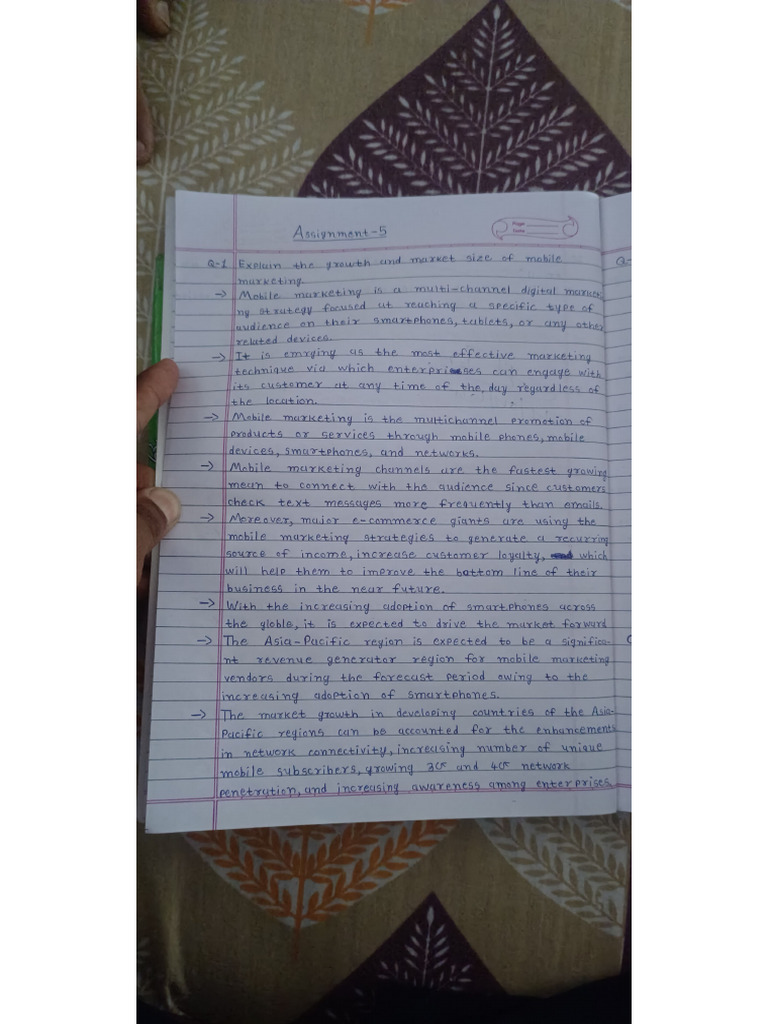 Assignment-5
Page:
Date:
Q-1 Explain the growth and market size of mobile
marketing.
-> Mobile marketing is a multi-channel digital market
ng strategy focused at reaching a specific type of
audience on their smartphones, tablets, or any other
related devices.
-> It is emrging as the most effective marketing
technique via which enterprises can engage with
its customer at any time of the day regardless of
the location.
-> Mobile marketing is the multichannel promotion of
products or services through mobile phones, mobile
devices, smartphones, and networks.
-> Mobile marketing channels are the fastest growing
mean to connect with the audience since customers
check text messages more frequently than emails.
-> Moreover, major e-commerce giants are using the
mobile marketing strategies to generate a recurring
source of income, increase customer loyalty, which
will help them to improve the bottom line of their
business in the near future.
-> With the increasing adoption of smartphones across
the globle, it is expected to drive the market forward
-> The Asia-Pacific region is expected to be a significa-
nt revenue generator region for mobile marketing
vendors during the forecast period owing to the
increasing adoption of smartphones.
-> The market growth in developing countries of the Asia-
Pacific regions can be accounted for the enhancements
in network connectivity, increasing number of unique
mobile subscribers, growing 3G and 4G network
penetration, and increasing awareness among enterprises
Q-